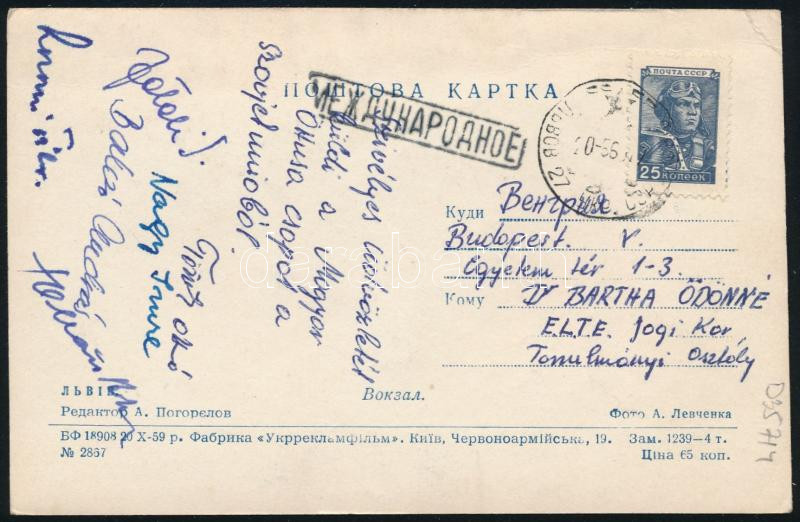 ПОШТОВА КАРТКА
МЕЖДУНАРОДНОЕ
ПОЧТА СССР
25 КОПЕЕК
ЛЬВОВ 27
Szívélyes üdvözletét
küldi a Magyar
csoport a
Szovjetunióból
Balázs
Nagy Imre
Куди Венгрия
Budapest. V.
Egyetem tér 1-3.
Кому Dr BARTHA ÖDÖNNÉ
E.L.T.E. Jogi Kar
Tanulmányi Osztály
ЛЬВІВ
Вокзал.
Редактор А. Погорєлов
Фото А. Левченка
БФ 18908 20 X-59 р. Фабрика «Укррекламфільм». Київ, Червоноармійська, 19. Зам. 1239—4 т.
№ 2867
Ціна 65 коп.
darabanth